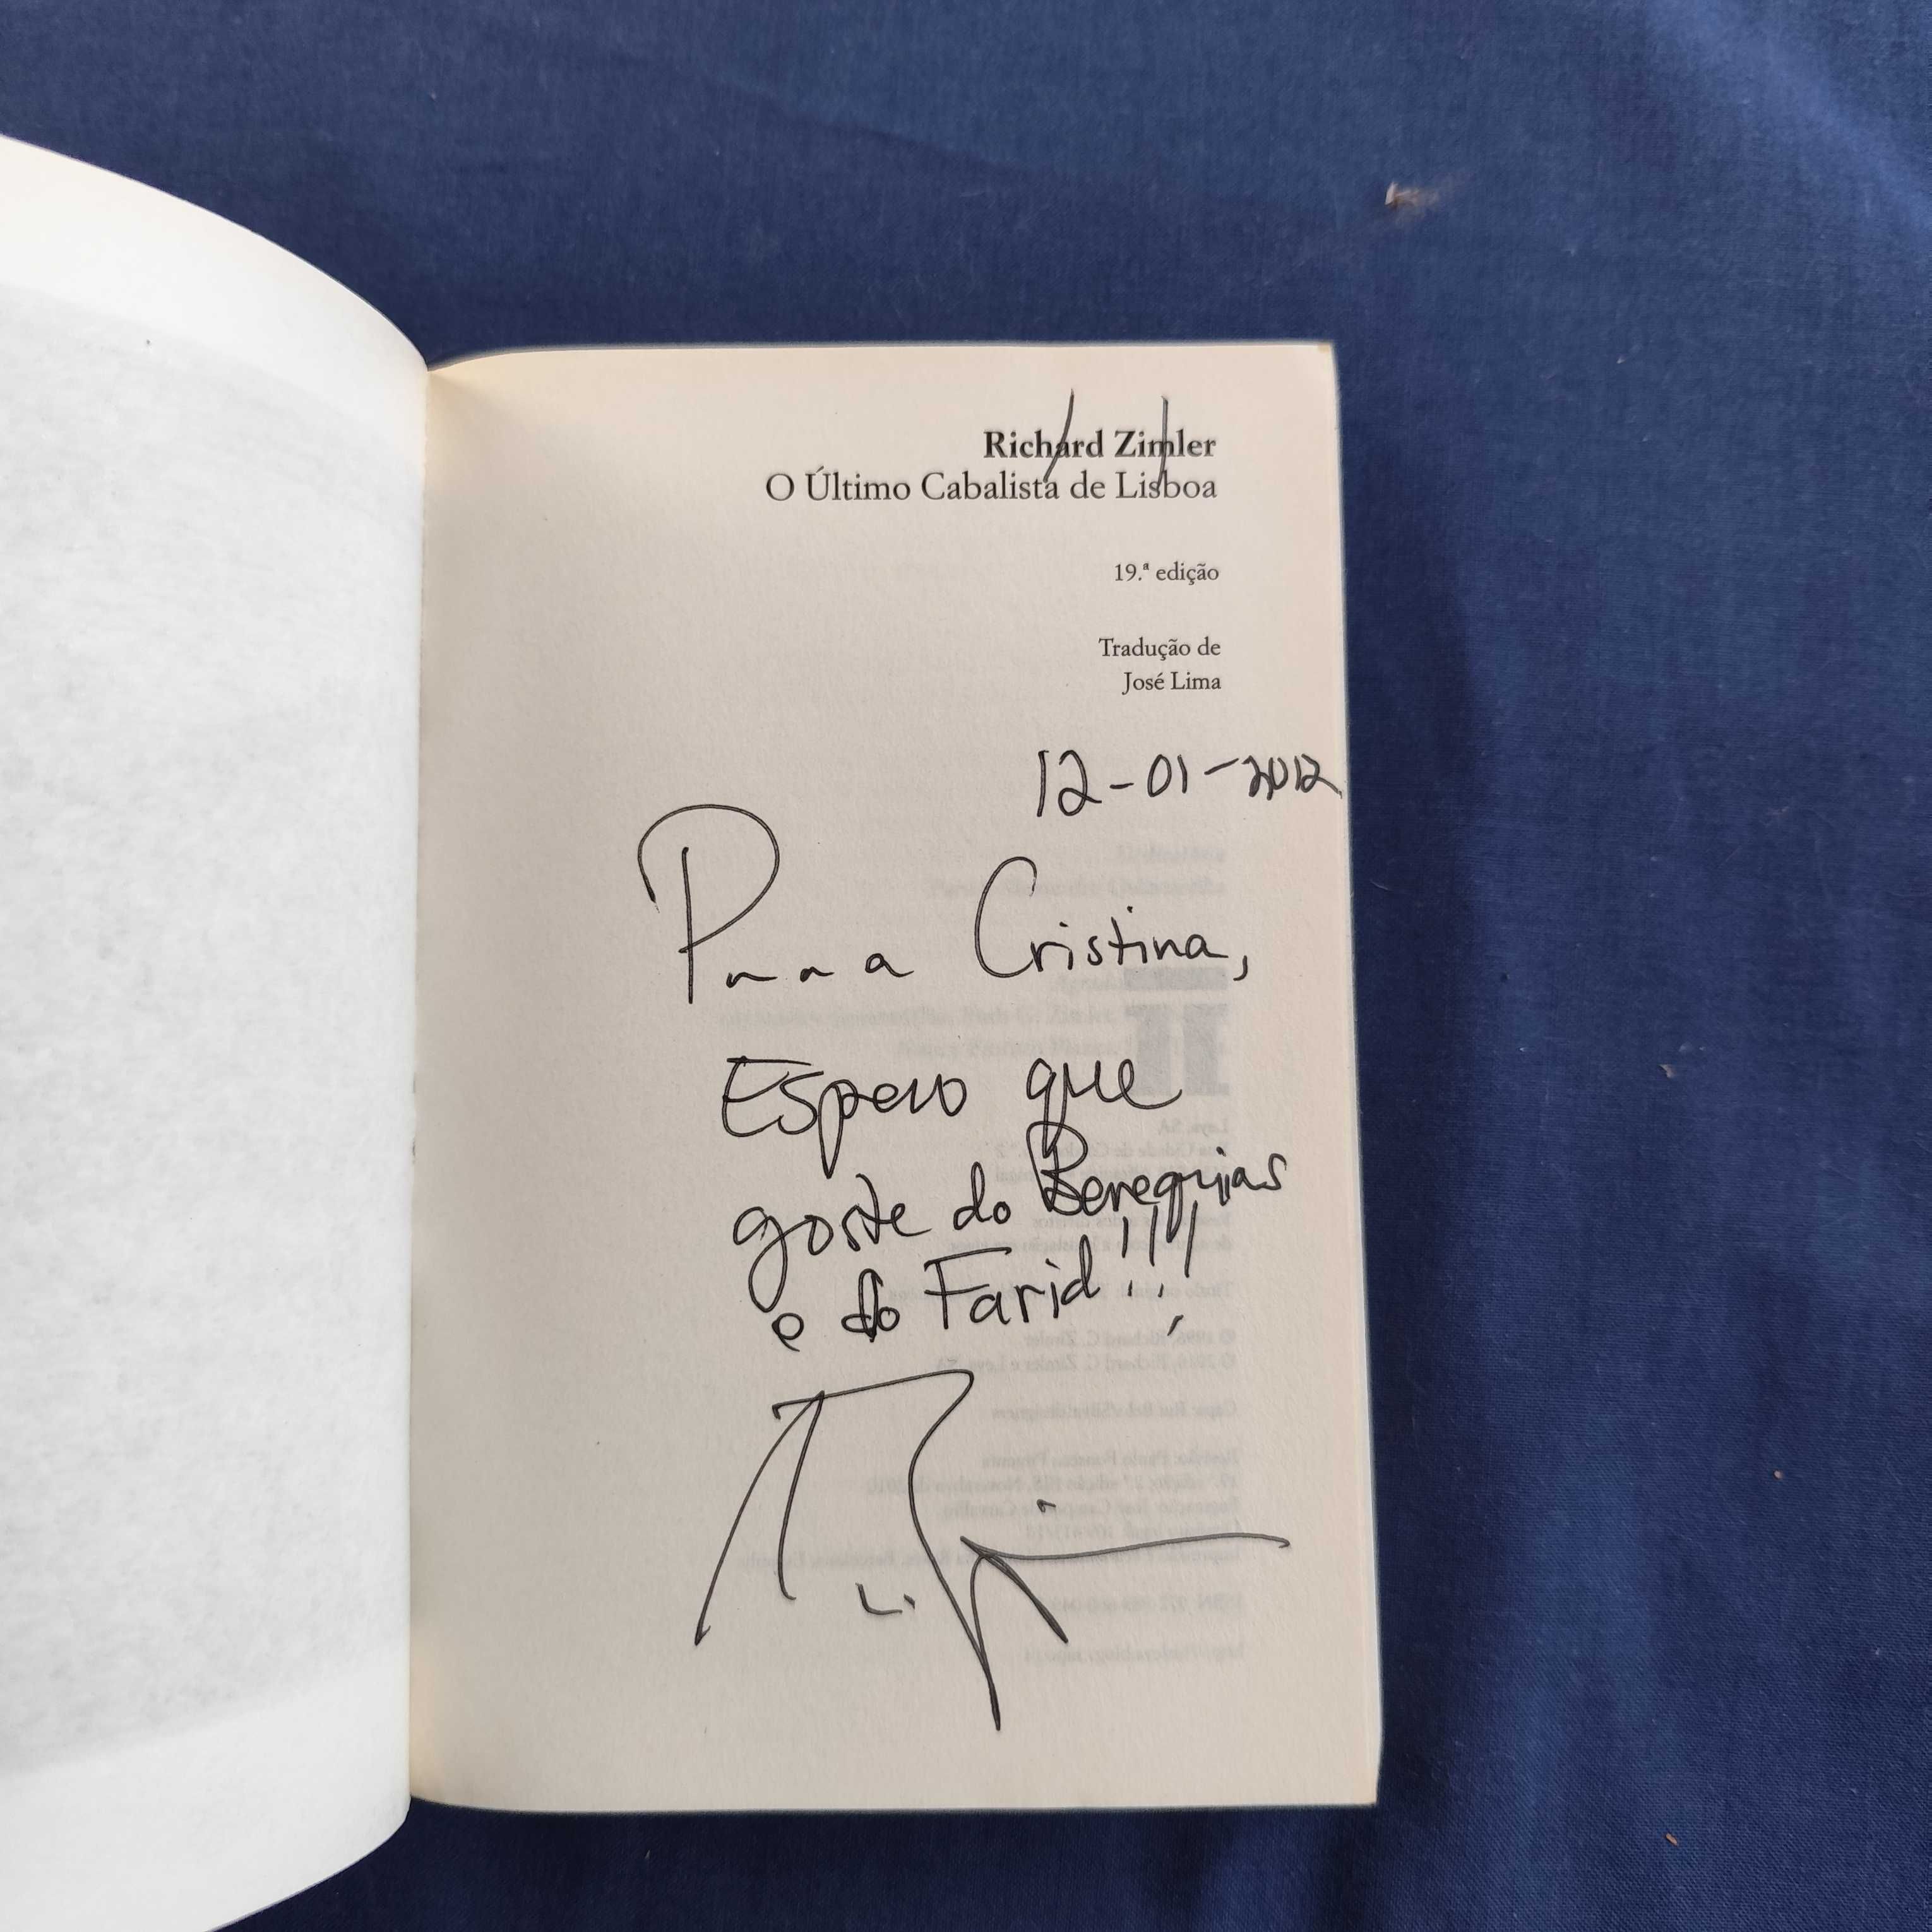 Richard Zimler
O Último Cabalista de Lisboa
19.ª edição
Tradução de
José Lima
12-01-2012
Para a Cristina,
Espero que
goste do Berequias
e do Farid!!!